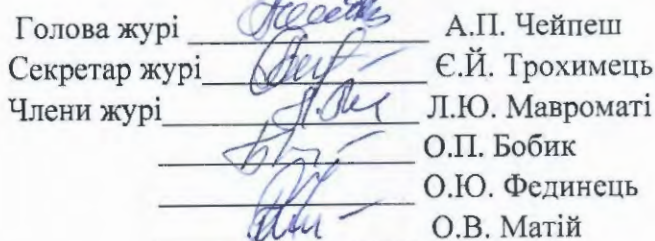 Голова журі А.П. Чейпеш
Секретар журі Є.Й. Трохимець
Члени журі Л.Ю. Мавроматі
О.П. Бобик
О.Ю. Фединець
О.В. Матій